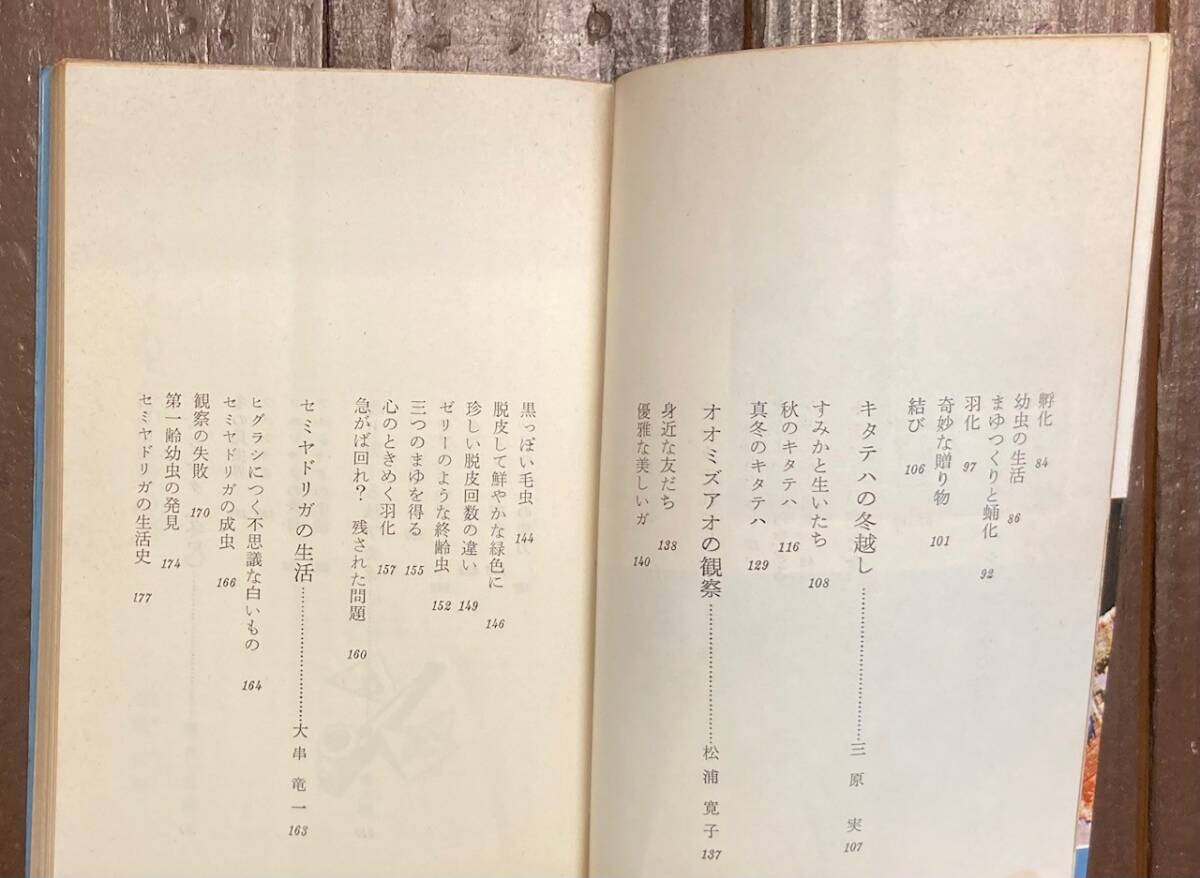 孵化 84
幼虫の生活 86
まゆつくりと蛹化 92
羽化 97
奇妙な贈り物 101
結び 106
キタテハの冬越し……………………三原 実 107
すみかと生いたち 108
秋のキタテハ 116
真冬のキタテハ 129
オオミズアオの観察……………………松浦寛子 137
身近な友だち 138
優雅な美しいガ 140
黒っぽい毛虫 144
脱皮して鮮やかな緑色に 146
珍しい脱皮回数の違い 149
ゼリーのような終齢虫 152
三つのまゆを得る 155
心のときめく羽化 157
急がば回れ? 残された問題 160
セミヤドリガの生活……………………大串竜一 163
ヒグラシにつく不思議な白いもの 164
セミヤドリガの成虫 166
観察の失敗 170
第一齢幼虫の発見 174
セミヤドリガの生活史 177